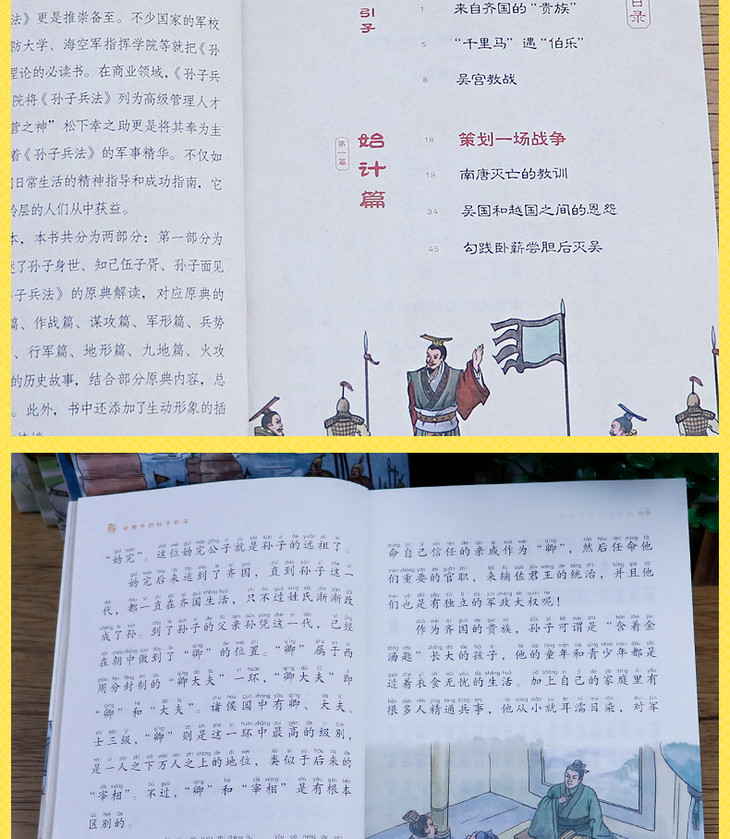 法》更是推崇备至。不少国家的军校
防大学、海空军指挥学院等就把《孙
理论的必读书。在商业领域,《孙子兵
院将《孙子兵法》列为高级管理人才
营之神”松下幸之助更是将其奉为圭
着《孙子兵法》的军事精华。不仅如
日常生活的精神指导和成功指南,它
龄层的人们从中获益。
本,本书共分为两部分:第一部分为
了孙子身世、知己伍子胥、孙子面见
子兵法》的原典解读,对应原典的
篇、作战篇、谋攻篇、军形篇、兵势
、行军篇、地形篇、九地篇、火攻
的历史故事,结合部分原典内容,总
。此外,书中还添加了生动形象的插
目录
引子
1 来自齐国的“贵族”
5 “千里马”遇“伯乐”
8 吴宫教战
第一篇
始计篇
18 策划一场战争
19 南唐灭亡的教训
34 吴国和越国之间的恩怨
45 勾践卧薪尝胆后灭吴
“妫完”。这位妫完公子就是孙子的远祖了。
妫完后来逃到了齐国,直到孙子这一
代,都一直在齐国生活,只不过姓氏渐渐改
成了孙。到了孙子的父亲孙凭这一代,已经
在朝中做到了“卿”的位置。“卿”属于西
周分封制的“卿大夫”一环,“卿大夫”即
“卿”和“大夫”。诸侯国中有卿、大夫、
士三级,“卿”则是这一环中最高的级别,
是一人之下万人之上的地位,类似于后来的
“宰相”。不过,“卿”和“宰相”是有根本
区别的。
命自己信任的亲戚作为“卿”,然后任命他
们重要的官职,来辅佐君王的统治,并且他
们也是有独立的军政大权呢!
作为齐国的贵族,孙子可谓是“含着金
汤匙”长大的孩子,他的童年和青少年都是
过着衣食无忧的生活。加上自己的家庭里有
很多人精通兵事,他从小就耳濡目染,对军